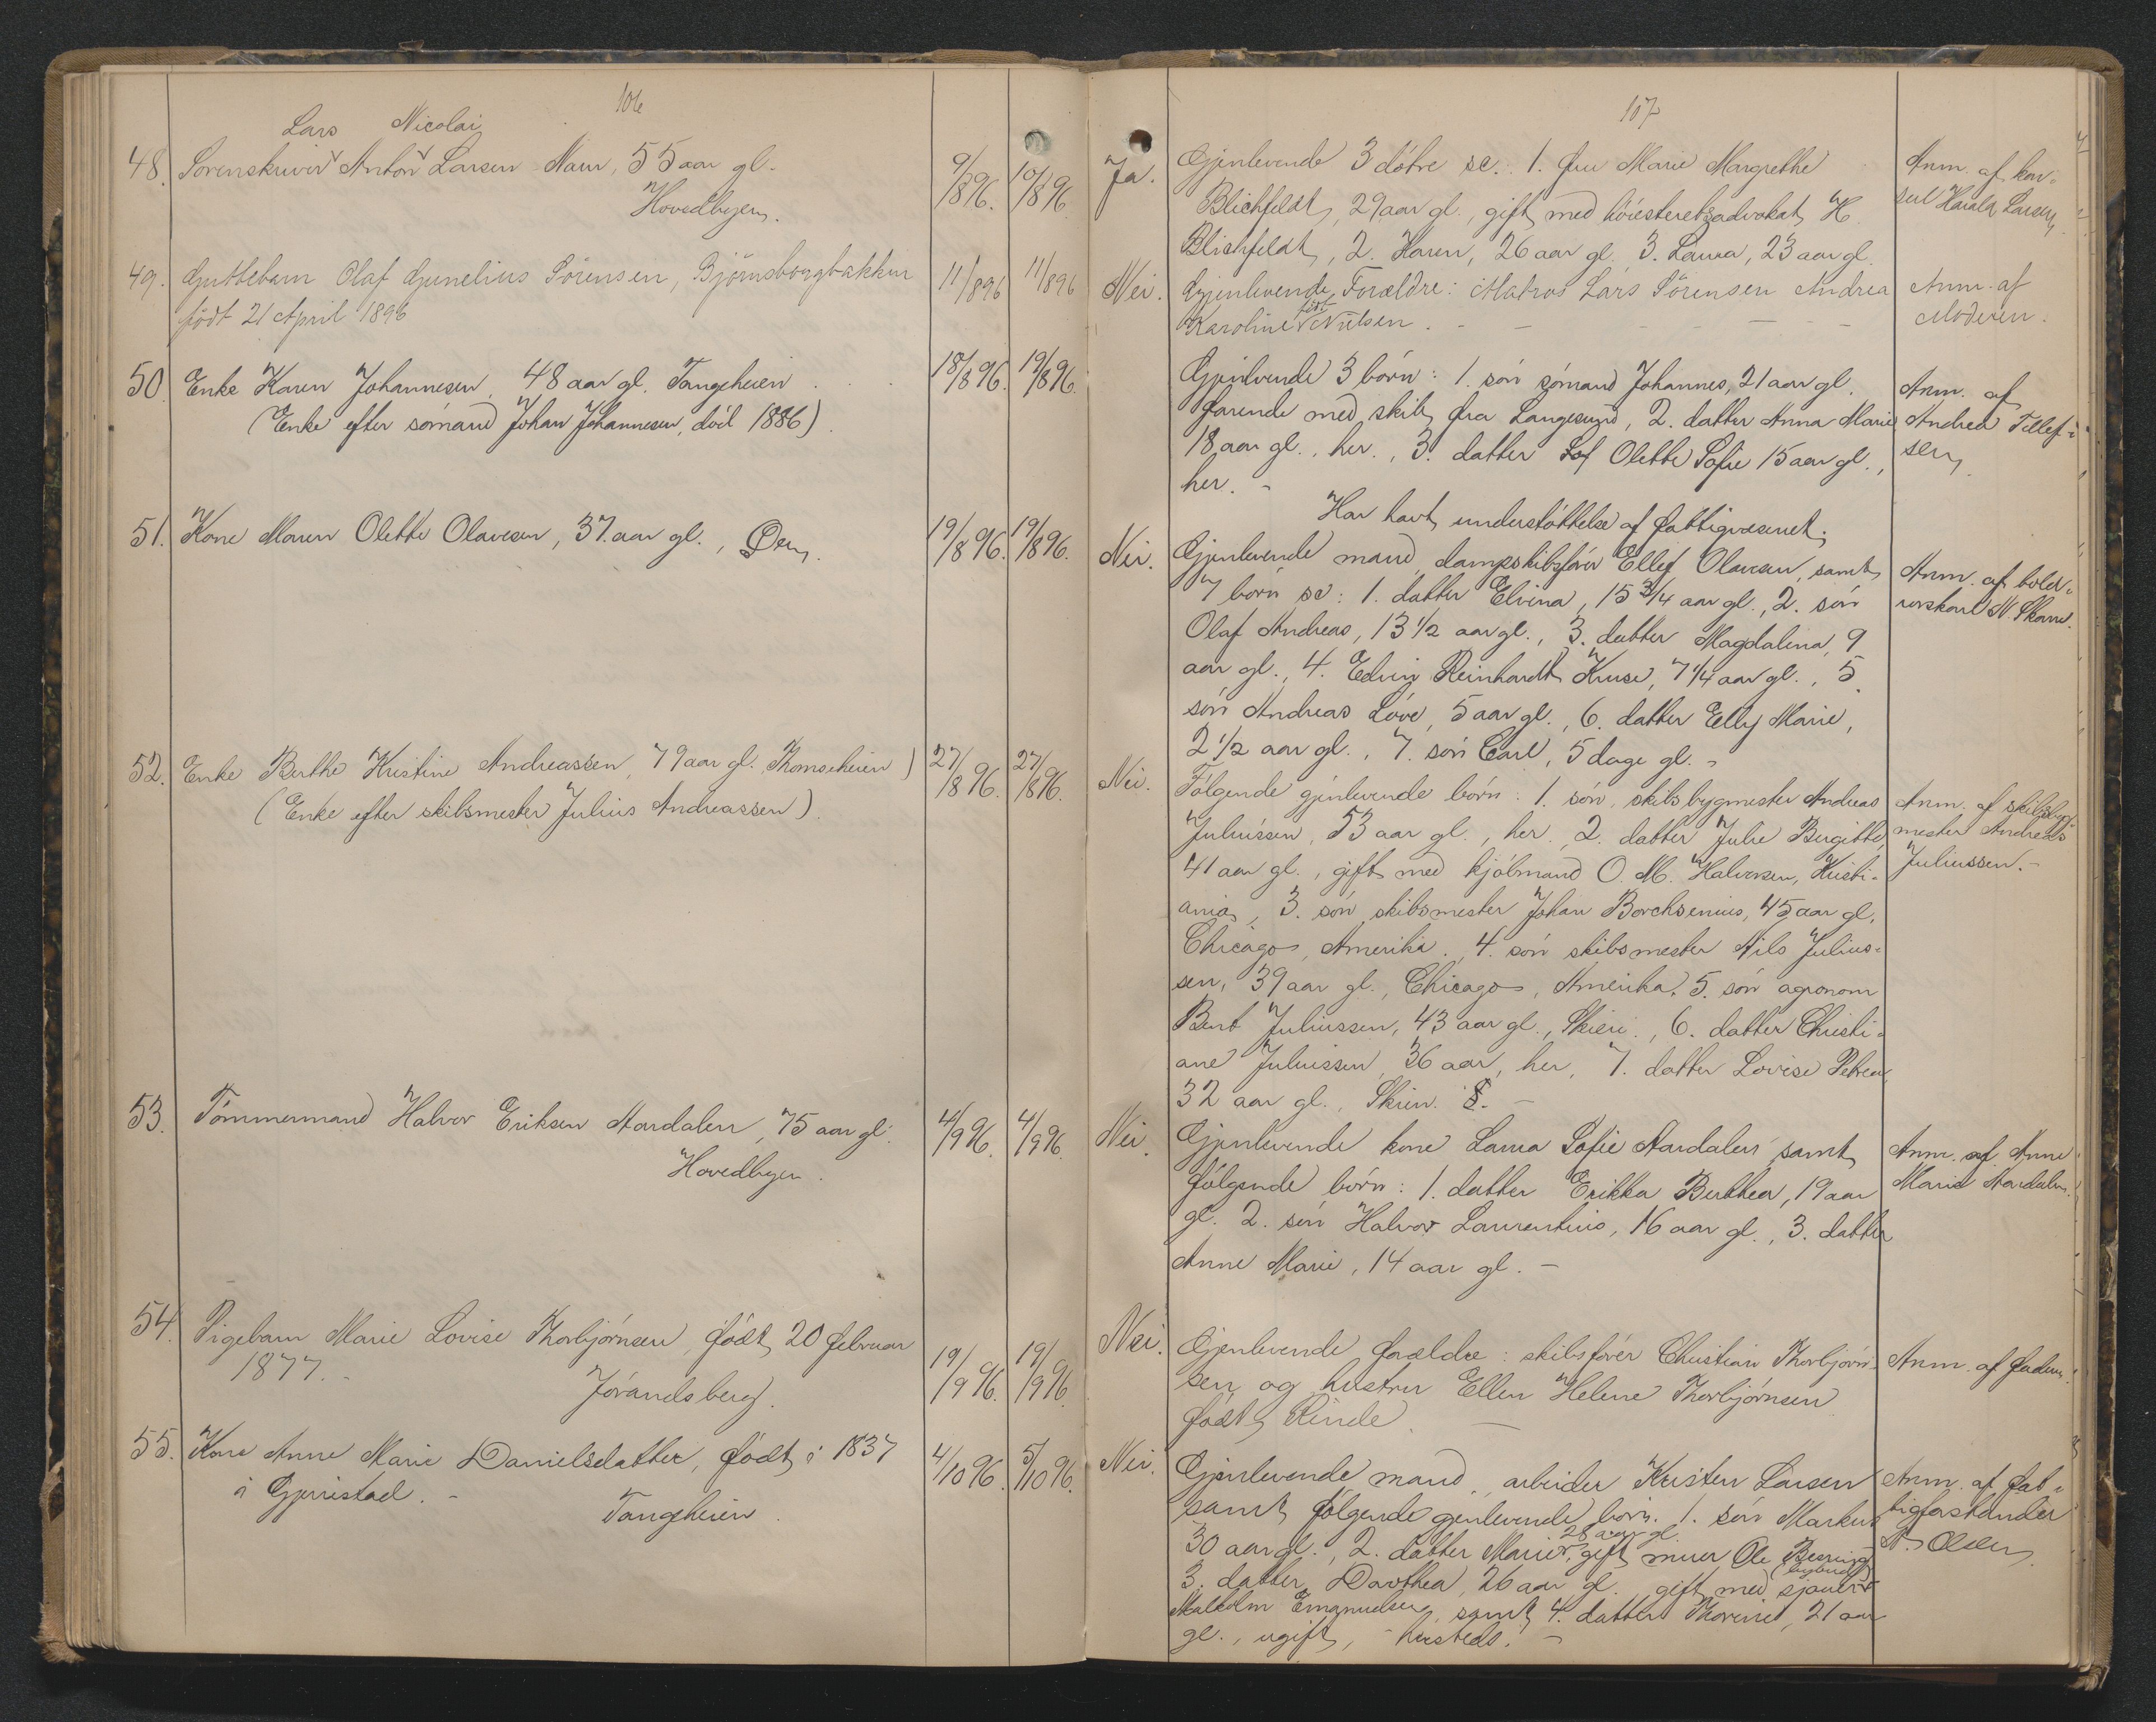 106
Lars Nicolai
48. Sorenskriver Anton Larsen Naur, 55 aar gl. 9/8 96. 10/8 96. Ja.
Hovedbyen.
49. Guttebarn Olaf Gunelius Sörensen, Björnsborgbakken 11/8 96 11/8 96 Nei.
födt 21 April 1896
50. Enke Karen Johannesen, 48 aar gl. Tangeheien 18/8 96. 19/8 96.
(Enke efter sömand Johan Johannesen, död 1886).
51. Kone Maren Olette Olavesen, 37 aar gl., Øen. 19/8 96. 19/8 96. Nei.
52. Enke Berthe Kristine Andreassen, 79 aar gl. Thomseheien) 27/8 96. 27/8 96. Nei.
(Enke efter skibsmester Julius Andreassen).
53. Tömmermand Halvor Eriksen Aardalen, 75 aar gl. 4/9 96. 4/9 96. Nei.
Hovedbyen.
54. Pigebarn Marie Lovise Thorbjörnsen, födt 20 februar Nei.
1877. - 19/9 96. 19/9 96.
Jörandsberg.
55. Kone Anne Marie Danielsdatter, födt i 1837 4/10 96. 5/10 96. Nei.
i Gjerrestad. -
Tangeheien.
107
Gjenlevende 3 dötre sc.: 1. fru Marie Margrethe
Blichfeldt, 29 aar gl., gift med höiesteretsadvokat H.
Blichfeldt, 2. Karen, 26 aar gl., 3. Laura, 23 aar gl.
Anm. af kon-
sul Harald Larsen
Gjenlevende Forældre: Matros Lars Sörensen Andrea
Karoline födt Nilsen. -
Anm. af
Moderen.
Gjenlevende 3 börn: 1. sön sömand Johannes, 21 aar gl.
farende med skib fra Langesund, 2. datter Anna Marie
18 aar gl., her., 3. datter Sof Olette Sofie 15 aar gl.,
her. -
Har havt understöttelse af fattigvæsenet.
Anm. af
Andrea Tellef-
sen,
Gjenlevende mand, dampskibsförer Ellef Olavesen, samt
7 börn sc: 1. datter Elvina, 15 3/4 aar gl., 2. sön
Olaf Andreas, 13 1/2 aar gl., 3. datter Magdalina, 9
aar gl., 4. Edvin Reinhardt Kruse, 7 1/4 aar gl., 5.
sön Andreas Löve, 5 aar gl., 6. datter Elly Marie,
2 1/2 aar gl., 7. sön Carl, 5 dage gl. -
Anm. af
N. Skarre.
Fölgende gjenlevende börn: 1. sön, skibsbygmester Andreas
Juliussen, 53 aar gl., her., 2. datter Julie Birgitte,
41 aar gl., gift med kjöbmand O. M. Halvorsen, Kristi-
ania, 3. sön skibsmester Johan Borchsenius, 45 aar gl.
Chicago, Amerika., 4. sön skibsmester Nils Julius-
sen, 39 aar gl., Chicago, Amerika. 5. sön agronom
Bent Juliussen, 43 aar gl., Skien., 6. datter Christi-
ane Juliussen, 36 aar, her, 7. datter Lovise Petrea,
32 aar gl., Skien. 8. -
Anm. af skibsbyg-
mester Andreas
Juliussen. -
Gjenlevende kone Laura Sofie Aardalen samt
fölgende börn: 1. datter Erikka Berthea, 19 aar
gl. 2. sön Halvor Laurentius, 16 aar gl., 3. datter
Anne Marie, 14 aar gl. -
Anm. af Anne
Marie Aardalen.
Gjenlevende forældre: skibsförer Christian Thorbjörn-
sen og hustru Ellen Helene Thorbjörnsen
födt Rinde. -
Anm. af faderen.
Gjenlevende mand, arbeider Kristen Larsen
samt fölgende gjenlevende börn. 1. sön Markus
30 aar gl., 2. datter Marie, 28 aar gl. gift murer Ole
3. datter Dorthea, 26 aar gl. gift med sjauer
Malkolm Emanuelsen, samt 4. datter Thorine, 21 aar
gl., ugift, - hersteds. -
Anm. af fat-
tigforstander
Olsen